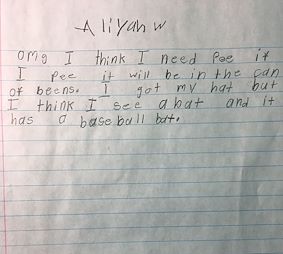 Aliyah w
omg I think I need Pee if
I pee it will be in the can
of beens. I got my hat but
I think I see a bat and it
has a baseball bat.